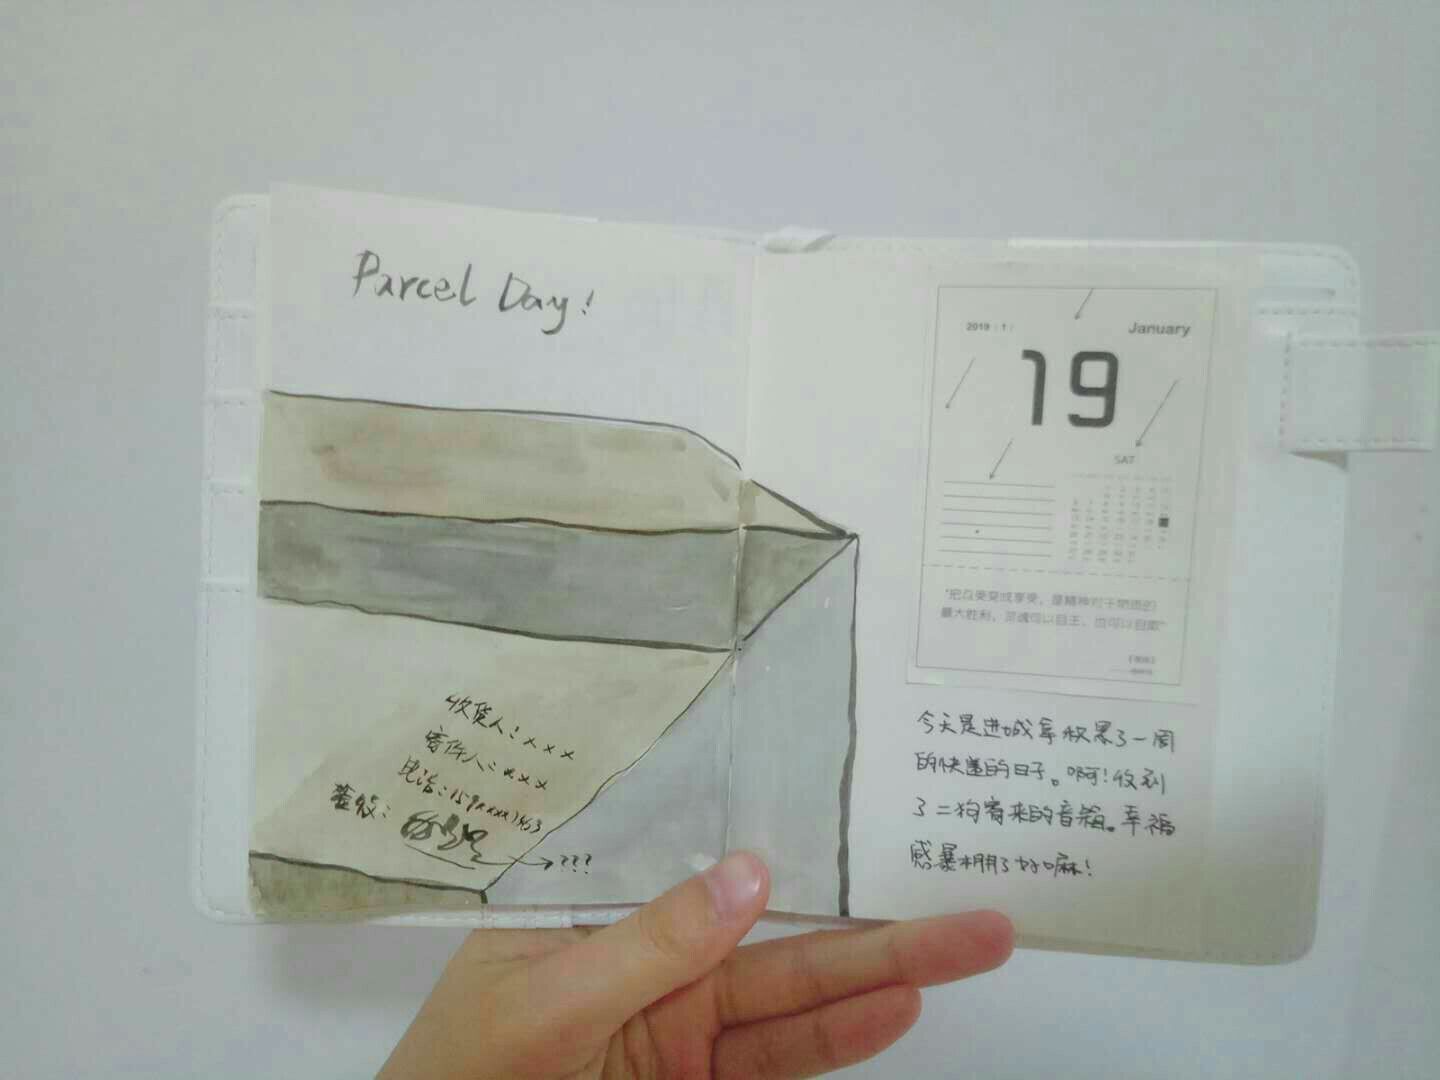 Parcel Day!
收货人：xxx
寄件人：xxx
电话：159xxxx1463
签收：
???
2019 | 1 |
January
19
SAT
"把忍受变成享受，是精神对于物质的
最大胜利，灵魂可以自主，也可以自欺"
今天是进城拿积累了一周
的快递的日子。啊！收到
了二狗寄来的音箱。幸福
感暴棚了好嘛！